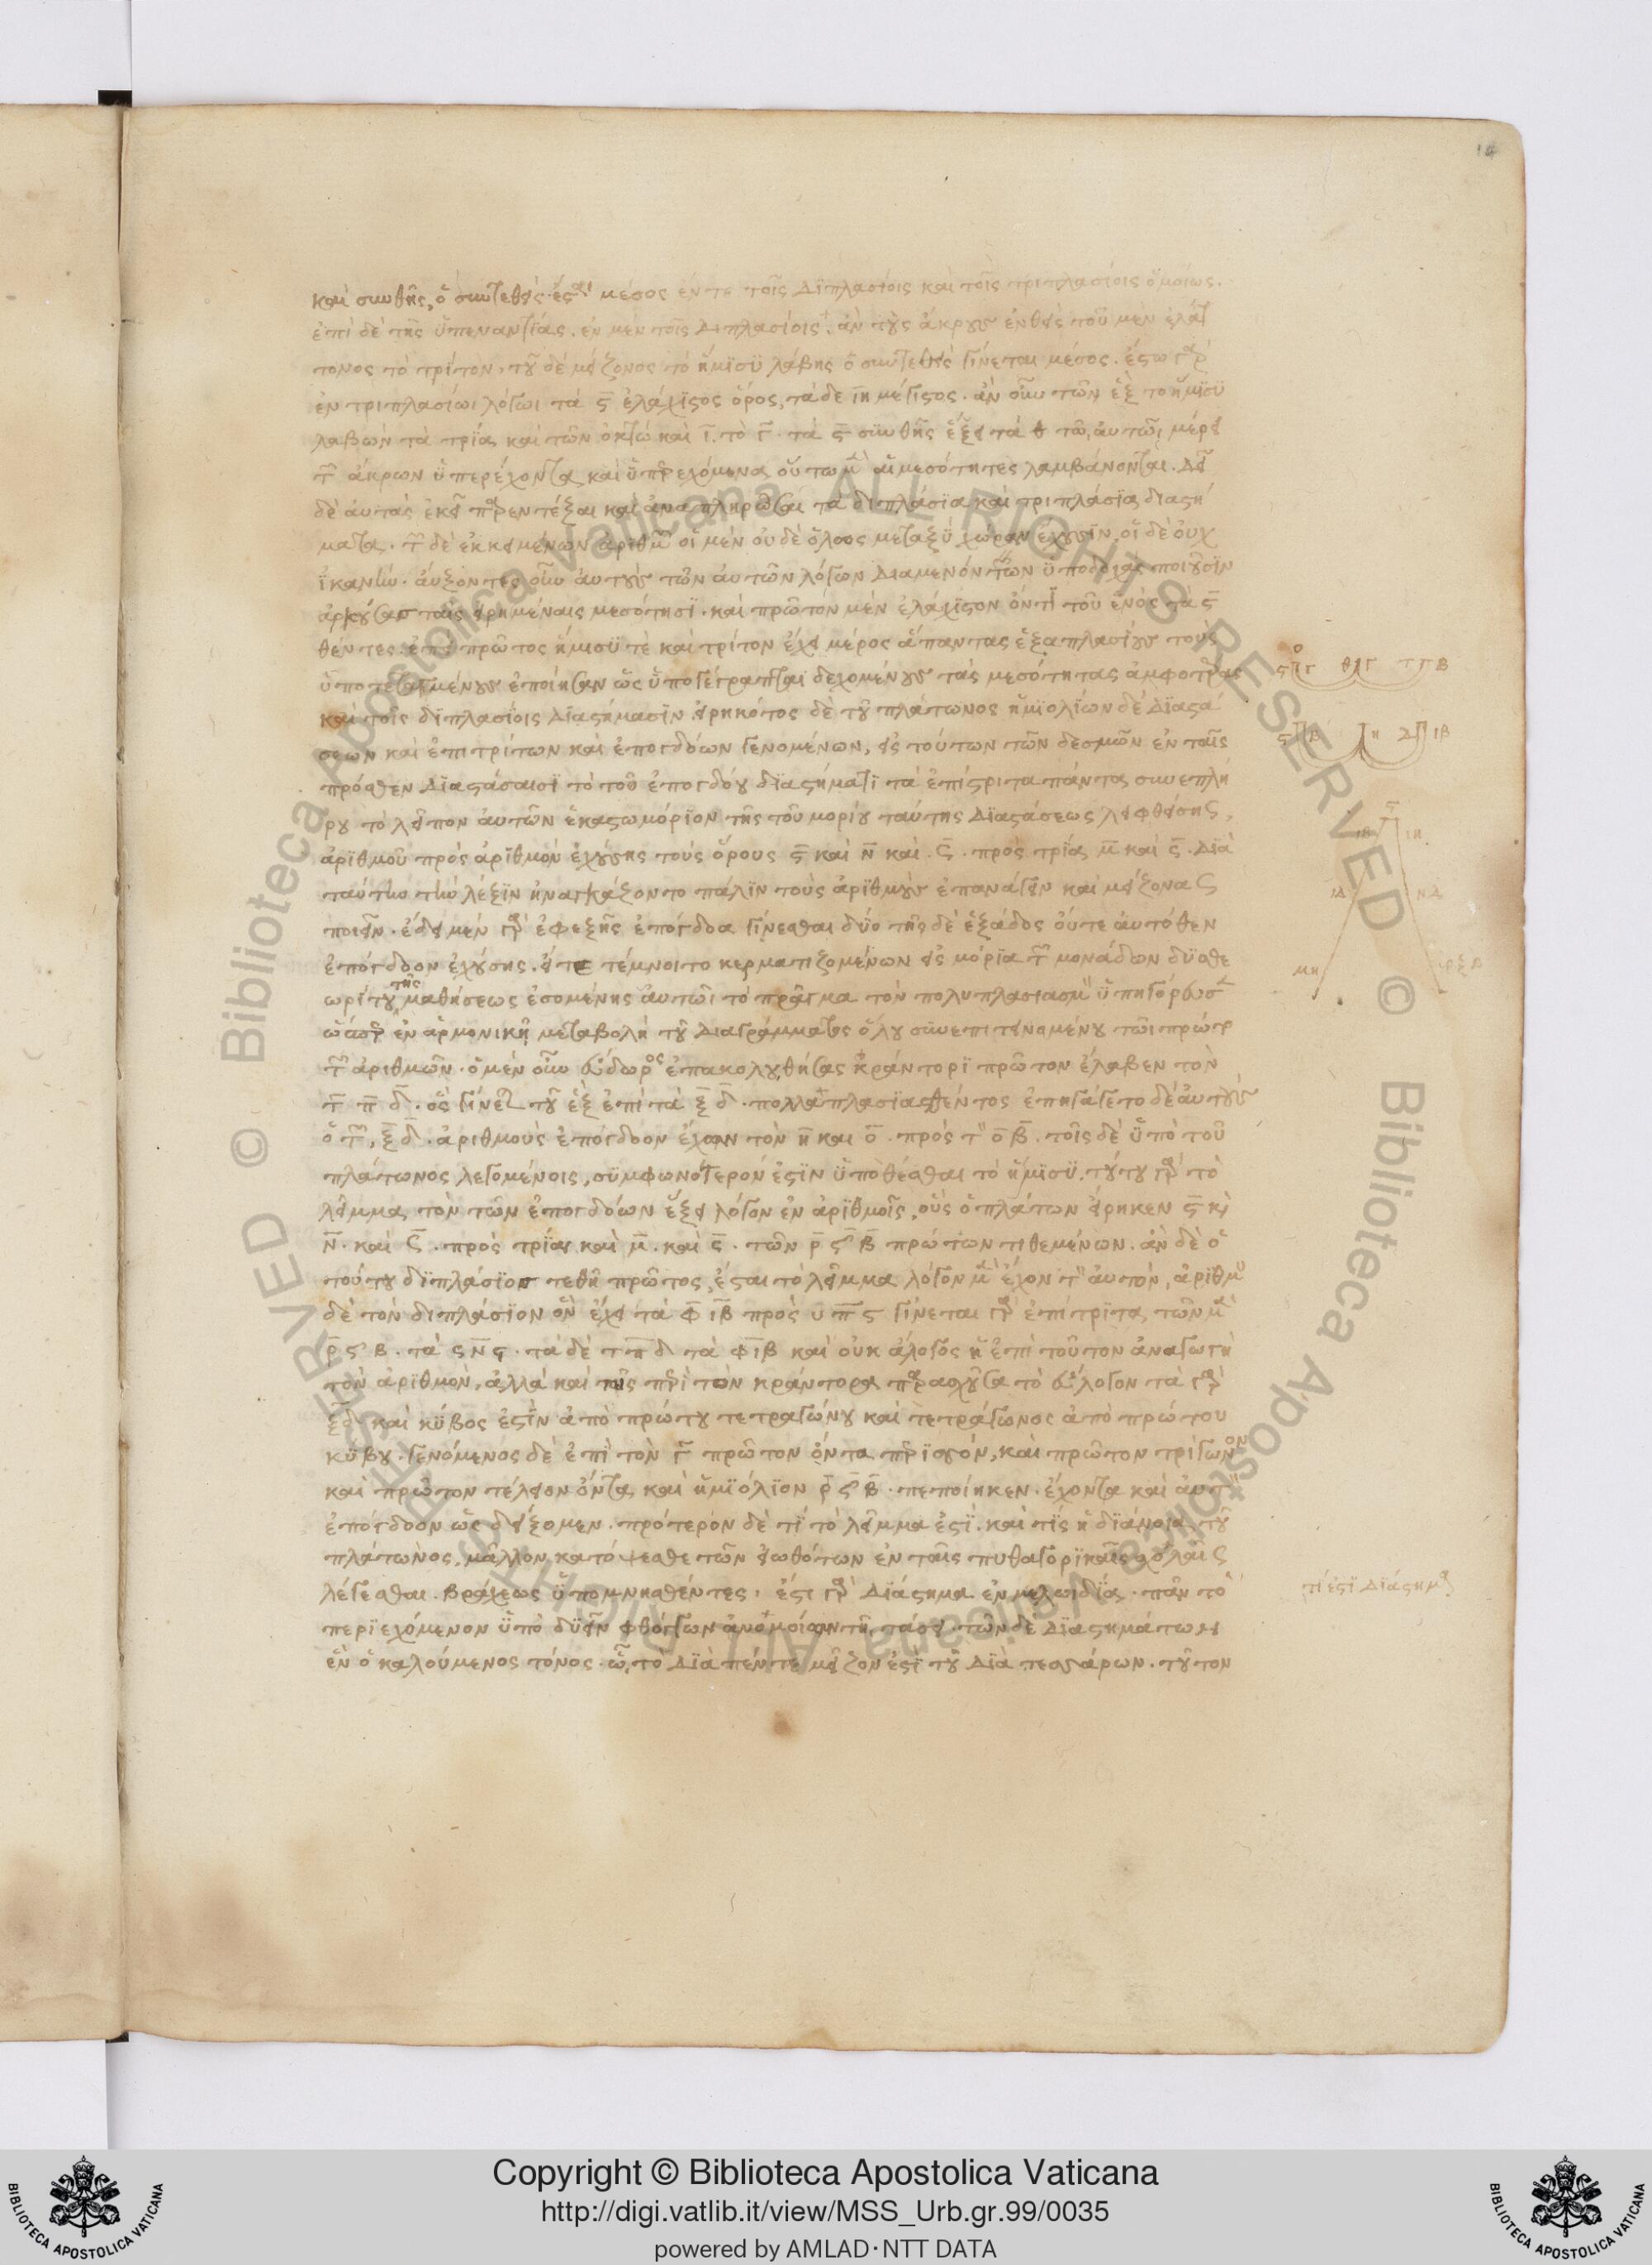 καὶ συνθῆς, ὁ συντεθεὶς ἔσται μέσος ἔν τε τοῖς διπλασίοις καὶ τοῖς τριπλασίοις ὁμοίως.
ἐπὶ δὲ τῆς ὑπεναντίας. ἐν μὲν τοῖς διπλασίοις. ἂν τοὺς ἄκρους ἐνθεὶς τοῦ μὲν ἐλάτ
τονος τὸ τρίτον, τοῦ δὲ μείζονος τὸ ἥμισυ λάβης ὁ συντεθεὶς γίνεται μέσος. ἔστω γὰρ
ἐν τριπλασίωι λόγωι τὰ ϛ ἐλάχιστος ὅρος, τὰ δὲ ιη μέγιστος. ἂν οὖν τῶν ἓξ το ἥμισυ
λαβὼν τὰ τρία καὶ τῶν ὀκτώ καὶ ι. τὸ γ. τὰ ϛ συνθῆς ἕξει τὰ θ τῶ, αὐτῶι μέρει
τῶν ἄκρων ὑπερέχοντα καὶ ὑπερεχόμενα οὕτω μὲν αἱ μεσότητες λαμβάνονται. δεῖ
δὲ αὐτὰς ἐκεῖ παρεντάξαι καὶ ἀναπληρῶσαι τὰ διπλάσια καὶ τριπλάσια διαστή
ματα. τῶν δὲ ἐκκειμένων ἀριθμῶν οἱ μὲν οὐδὲ ὅλοος μεταξὺ χώραν ἔχουσιν, οἱ δὲ οὐχ
ἱκανὴν. αὔξοντες οὖν αὐτοὺς τῶν αὐτῶν λόγων διαμενόντων ὑποδοχὰς ποιοῦσιν
ἀρκούσας ταῖς εἰρημέναις μεσότησι. καὶ πρῶτον μὲν ἐλάχιστον ἀντὶ τοῦ ἑνὸς τὰ ϛ
θέντες. ἐπεὶ πρῶτος ἥμισυ τὲ καὶ τρίτον ἔχει μέρος ἅπαντας ἑξαπλασίους τοὺς
ὑποτεταγμένους ἐποίησαν ὡς ὑπογέγραπται δεχομένους τὰς μεσότητας ἀμφοτέρας
καὶ τοῖς διπλασίοις διαστήμασιν εἰρηκότος δὲ τοῦ πλάτωνος ἡμιολίων δὲ διαστά
σεων καὶ ἐπιτρίτων καὶ ἐπογδόων γενομένων, εἰς τούτων τῶν δεσμῶν ἐν ταῖς
πρόσθεν διαστάσεσι τὸ τοῦ ἐπογδόου διαστήματι τὰ ἐπίτριτα πάντα συνεπλη
ρου το λεῖπον αὐτῶν ἑκάστω μόριον τῆς τοῦ μορίου ταύτης διαστάσεως λειφθείσης,
ἀριθμοῦ πρὸς ἀριθμὸν ἐχούσης τοὺς ὅρους ϛ καὶ ν καὶ ς. πρὸς τρία μ καὶ ς. διὰ
ταύτην τὴν λέξιν ἠναγκάζοντο πάλιν τοὺς ἀριθμοὺς ἐπανάγειν καὶ μείζονας
ποιεῖν. ἔδει μὲν γὰρ ἐφεξῆς ἐπόγδοα γίνεσθαι δύο τῆς δὲ ἑξάδος οὔτε αὐτόθεν
ἐπόγδοον ἐχούσης. εἴτε τέμνοιτο κερματιζομένων εἰς μόρια τῶν μονάδων δυσθε
ωρίτου τῆς μαθήσεως ἐσομένης αὐτῶι τὸ πρᾶγμα τὸν πολυπλασιασμὸν ὑπηγόρευσε
ὥσπερ ἐν ἁρμονικῆ μεταβολὴ τοῦ διαγράμματος ὅλου συνεπιτεινομένου τῶι πρώτω
τῶν ἀριθμῶν. ὁ μὲν οὖν εὔδωρος ἐπακολουθήσας κράντορι πρῶτον ἔλαβεν τὸν
τ π δ. ὃς γίνεται τοῦ ἓξ ἐπὶ τὰ ξ δ. πολλαπλασιασθέντος ἐπηγάγετο δὲ αὐτοὺς
ὁ τῶν, ξ δ. ἀριθμοὺς ἐπόγδοον ἔχων τὸν η και ο. πρὸς τὸν ο β. τοῖς δὲ ὑπὸ τοῦ
πλάτωνος λεγομένοις, συμφωνότερόν ἐστιν ὑποθέσθαι τὸ ἥμισυ. τούτου γὰρ τὸ
λεῖμμα τὸν τῶν ἐπογδόων ἕξει λόγον ἐν ἀριθμοῖς, οὓς ὁ πλάτων εἴρηκεν ϛ καὶ
ν. καὶ ς. πρὸς τρία καὶ μ. καὶ ς. τῶν ρ ϟ β πρώτων τιθεμένων. ἂν δὲ ὁ
τούτου διπλάσιος τεθῆ πρῶτος, ἔσται τὸ λεῖμμα λόγον μὲν ἔχον τὸν αὐτὸν, ἀριθμὸν
δὲ τὸν διπλάσιον ὃν ἔχει τὰ φ ιβ πρὸς υ π ϛ γίνεται γὰρ ἐπίτριτα τῶν μὲν
ρ ϟ β. τὰ ς ν ς. τὰ δὲ τ π δ τὰ φ ι β καὶ οὐκ ἄλογος ἡ ἐπὶ τοῦτον ἀναγωγὴ
τὸν ἀριθμὸν, ἀλλὰ καὶ τοῖς περὶ τὸν κράντορα παρασχοῦσα τὸ εὔλογον τὰ γὰρ
ξ δ καὶ κύβος ἐστὶν ἀπὸ πρώτου τετραγώνου καὶ τετράγωνος ἀπὸ πρώτου
κύβου. γενόμενος δὲ ἐπὶ τὸν γ πρῶτον ὄντα περισσόν, καὶ πρῶτον τρίγωνον
καὶ πρῶτον τέλειον ὄντα καὶ ἡμιόλιον ρ ϟ β. πεποίηκεν. ἔχοντα καὶ αὐτὸν
ἐπόγδοον ὡς δείξομεν. πρότερον δὲ τί τὸ λεῖμμα ἐστί. καὶ τίς ἡ διάνοια τοῦ
πλάτωνος, μᾶλλον κατόψεσθε τῶν εἰωθότων ἐν ταῖς πυθαγορικαῖς σχολαῖς
λέγεσθαι. βραχέως ὑπομνησθέντες. ἔστι γὰρ διάστημα ἐν μελωιδία. πᾶν τὸ
περιεχόμενον ὑπὸ δυεῖν φθόγγων ἀνομοίων τῆ, τάσει. τῶν δὲ διαστημάτων
ἓν ὁ καλούμενος τόνος. ὧ, τὸ διὰ πέντε μεῖζον ἐστὶ τοῦ διὰ τεσσάρων. τοῦτον
τί ἐστὶ διάστημα
Copyright © Biblioteca Apostolica Vaticana
http://digi.vatlib.it/view/MSS_Urb.gr.99/0035
powered by AMLAD·NTT DATA